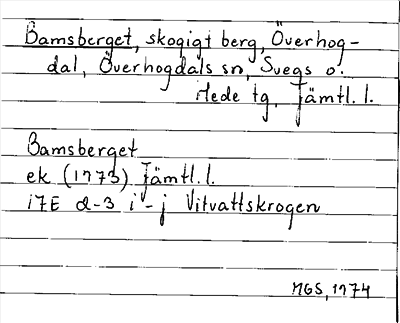 Bamsberget, skogigt berg, Överhog-
dal, Överhogdals sn, Svegs o.
Hede tg, Jämtl. l.
Bamsberget
ek (1973) Jämtl. l.
17E d-3 i-j Vitvattskrogen
MGS, 1974